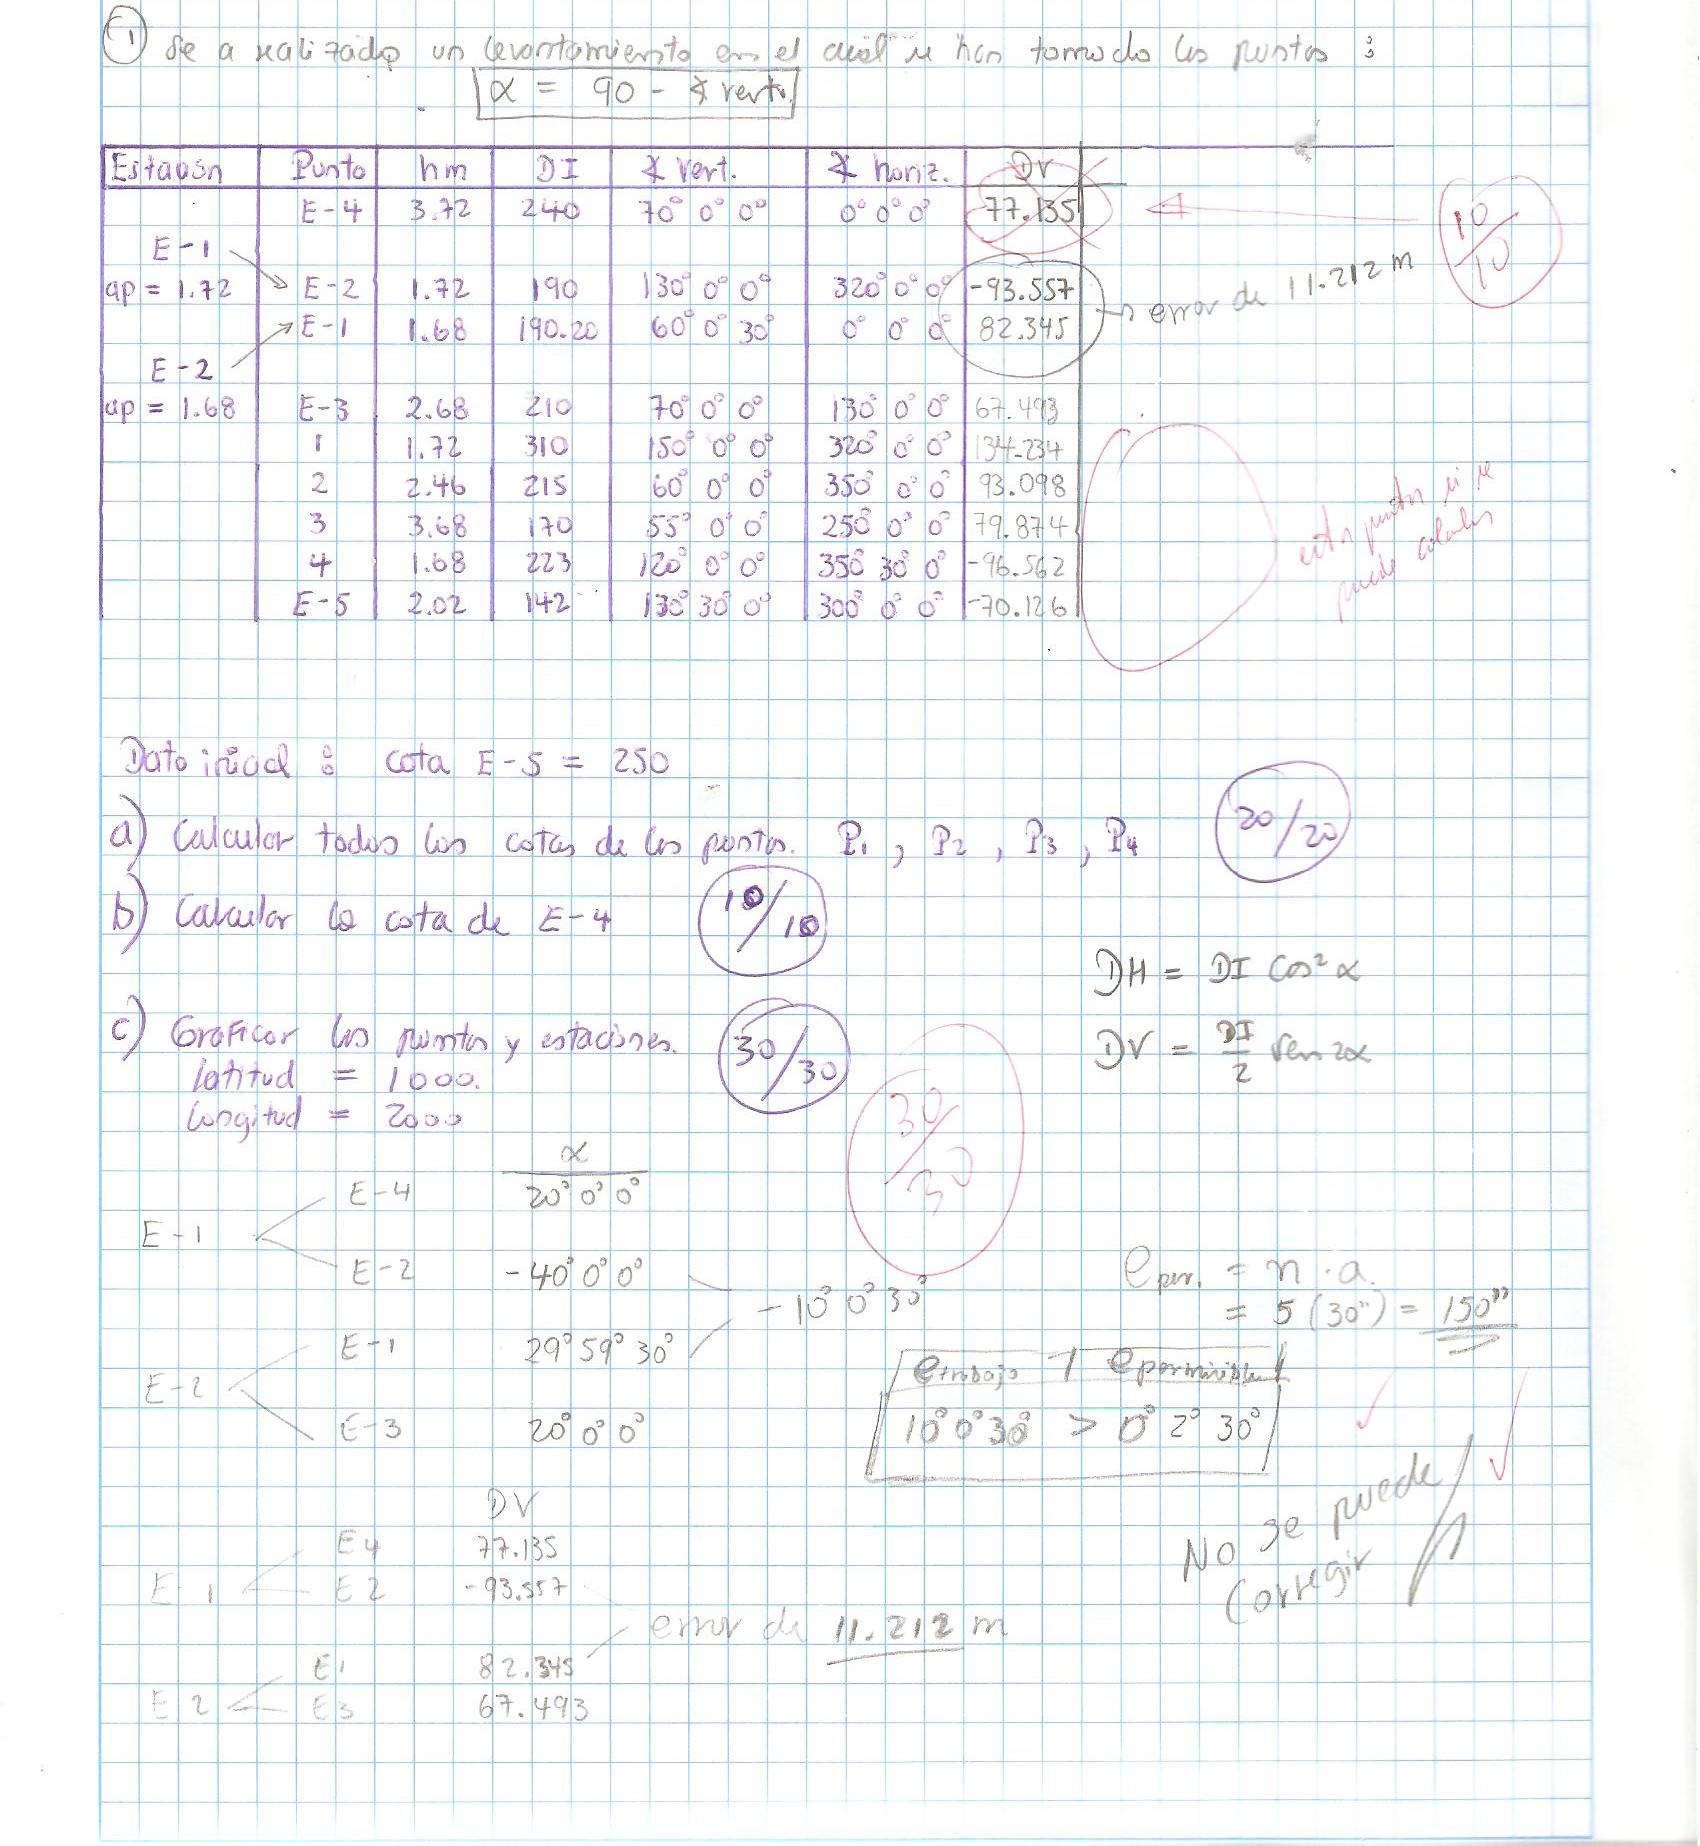 ① Se a realizado un levantamiento en el cuál se han tomado los puntos :
α = 90 - ∡ vert.
Estación Punto hm DI ∡ vert. ∡ horiz. DV
E-4 3.72 240 70° 0° 0° 0° 0° 0° 77.135
10/10
E-1
ap = 1.72 E-2 1.72 190 130° 0° 0° 320° 0° 0° -93.557
error de 11.212 m
E-1 1.68 190.20 60° 0° 30° 0° 0° 0° 82.345
E-2
ap = 1.68 E-3 2.68 210 70° 0° 0° 130° 0° 0° 67.493
1 1.72 310 150° 0° 0° 320° 0° 0° 134.234
2 2.46 215 60° 0° 0° 350° 0° 0° 93.098
3 3.68 170 55° 0° 0° 250° 0° 0° 79.874
4 1.68 223 120° 0° 0° 350° 30° 0° -96.562
E-5 2.02 142 130° 30° 0° 300° 0° 0° -70.126
estos puntos si se
puede calcular
Dato inicial : cota E-5 = 250
a) Calcular todas las cotas de los puntos. P1 , P2 , P3 , P4
20/20
b) Calcular la cota de E-4
10/10
DH = DI Cos² α
c) Graficar los puntos y estaciones.
30/30
DV = DI/2 Sen 2α
latitud = 1000.
longitud = 2000
30/30
α
E-1
E-4 20° 0° 0°
E-2 -40° 0° 0°
-10° 0° 30°
E-2
E-1 29° 59° 30°
E-3 20° 0° 0°
e per. = n . a.
= 5 (30") = 150"
e trabajo > e permisible
10° 0° 30° > 0° 2° 30°
No se puede
corregir
DV
E-1
E4 77.135
E2 -93.557
error de 11.212 m
E2
E1 82.345
E3 67.493